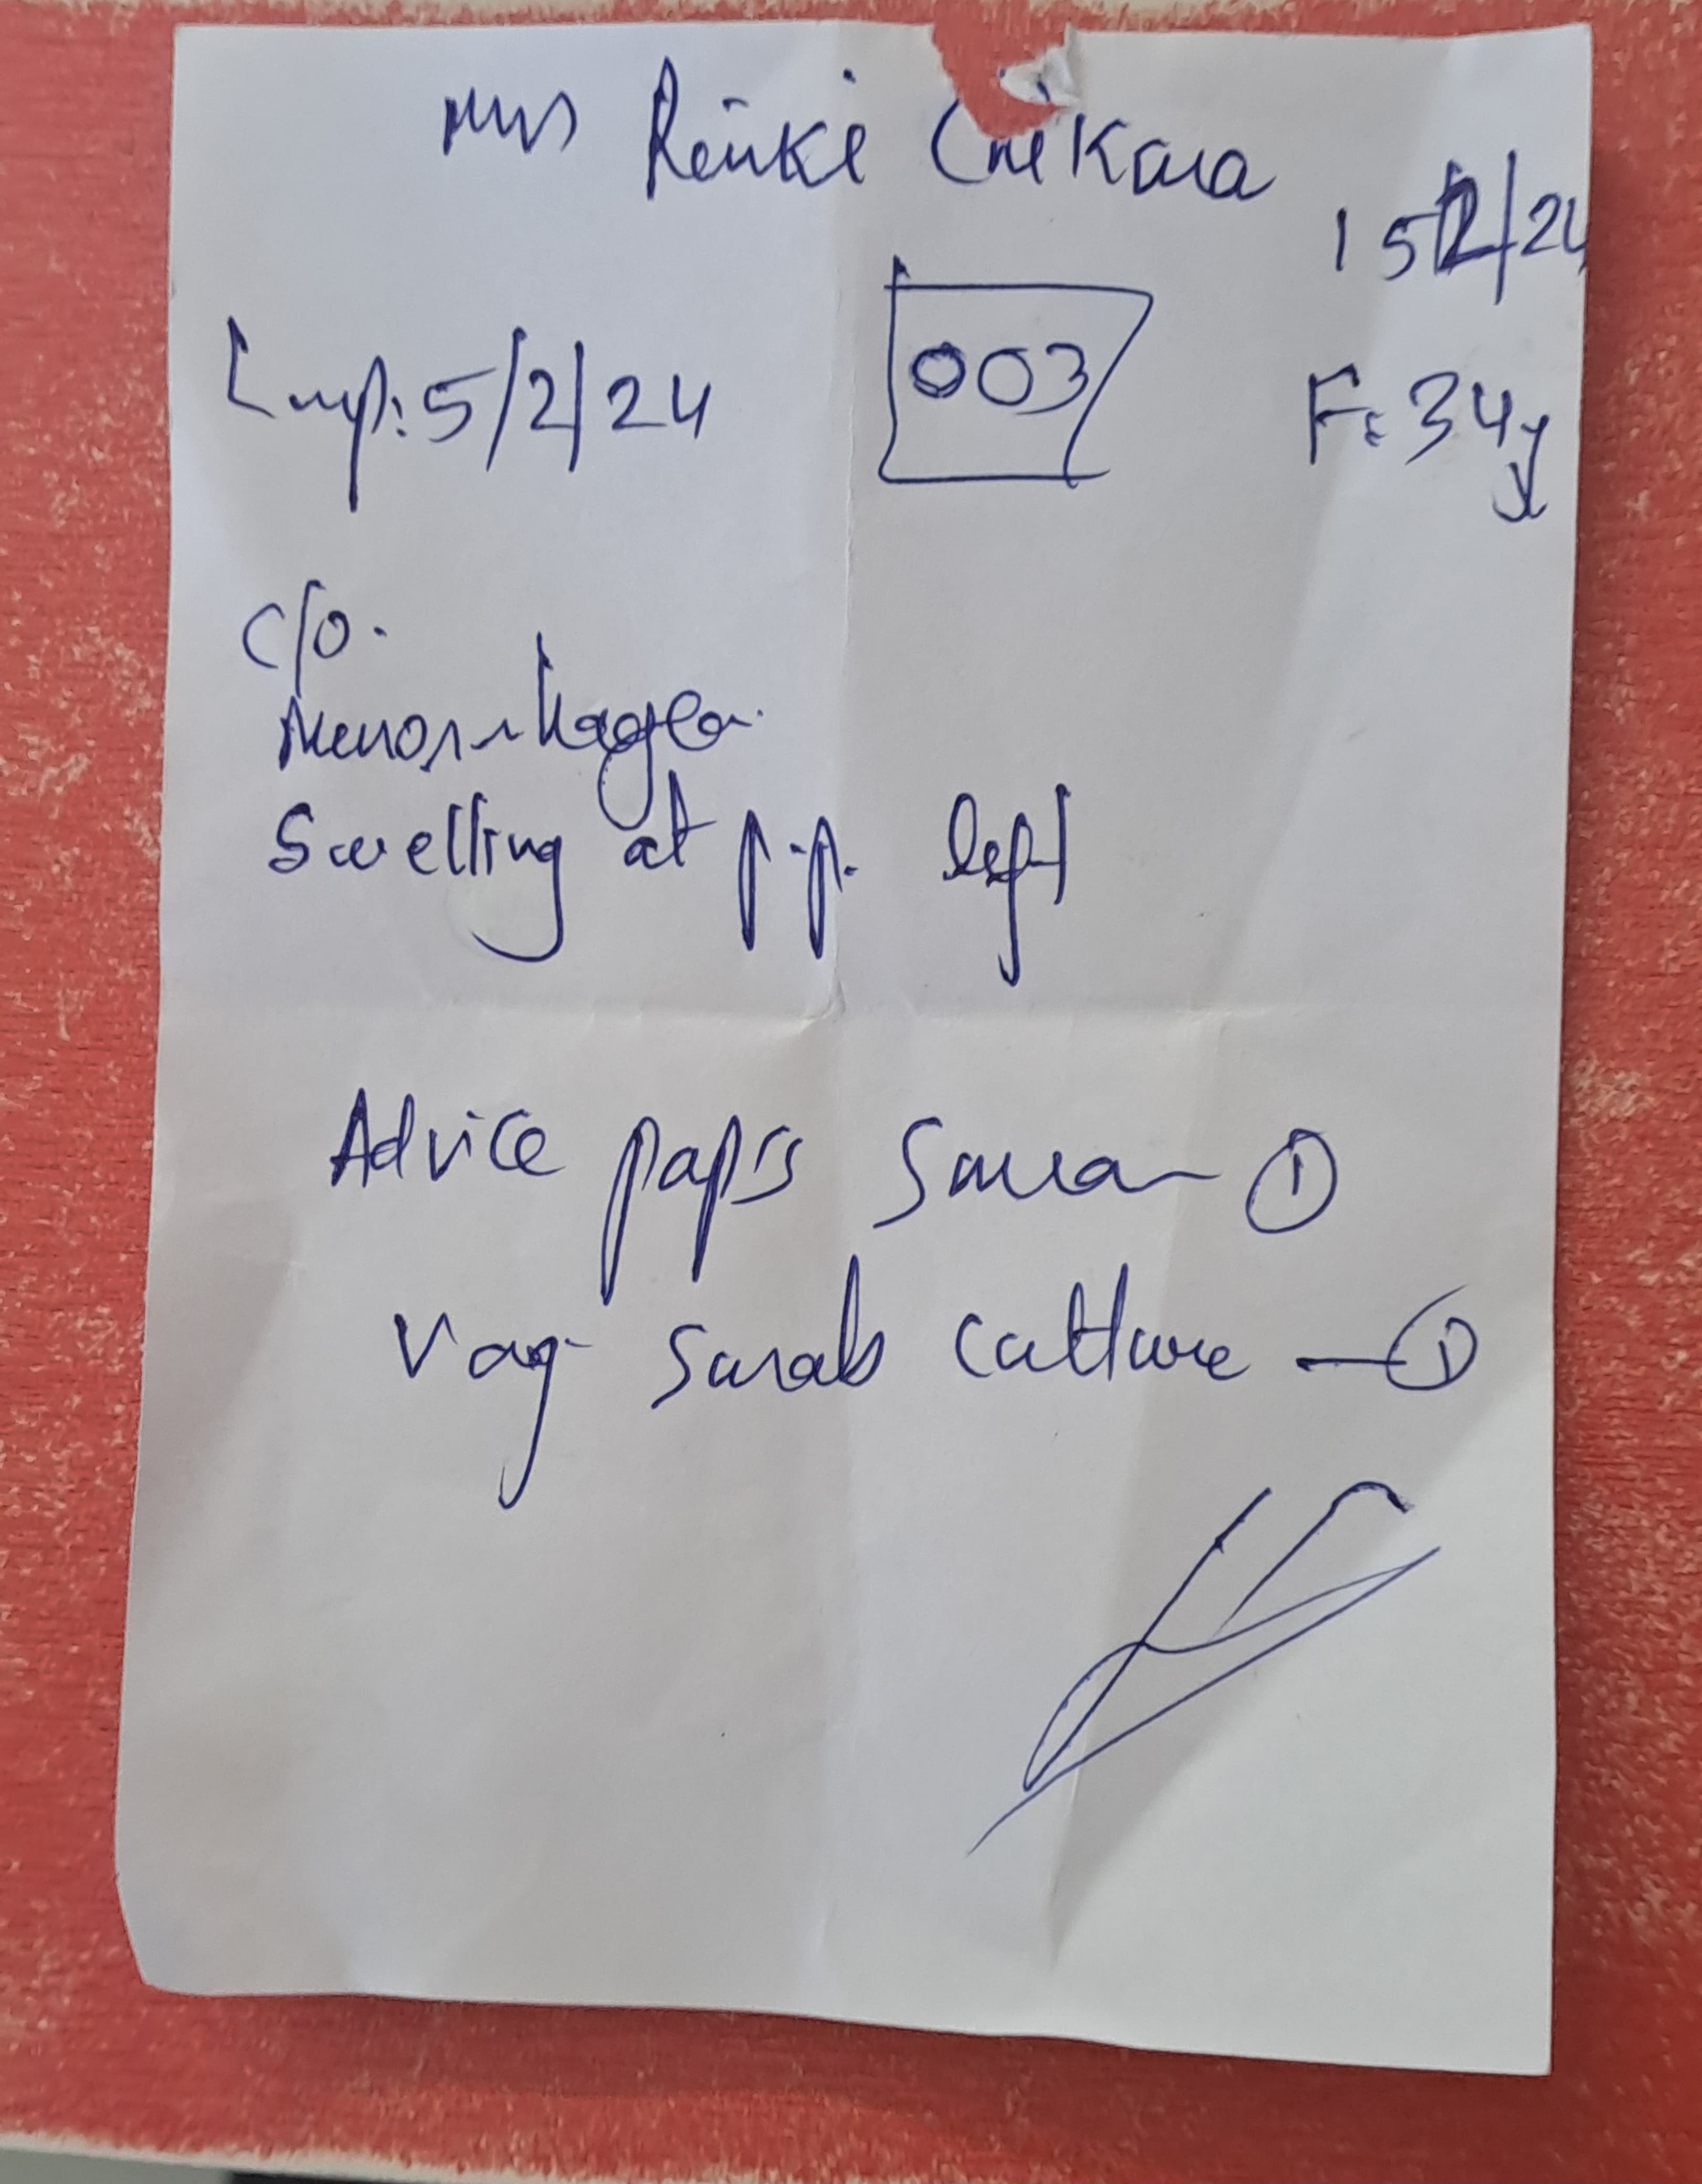 Mrs Rinki Chikara
15/2/24
Lmp: 5/2/24
003
F: 34y
C/O.
Menorrhagea.
Swelling at p.p. left
Advice pap's Smear ①
Vag Swab Culture — ①